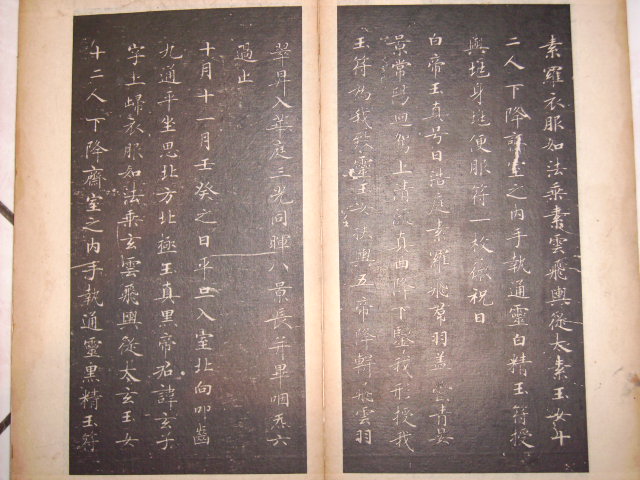 素羅衣服如法乘素雲飛輿從太素玉女十
二人下降齋室之内手執通靈白精玉符授
與某身某便服符一枚微祝曰
白帝玉真号曰浩庭素羅飛裙羽蓋欝青晏
景常陽迴駕上清流真曲降下鑒我形授我
玉符為我致靈玉女扶輿五帝降軿飛雲羽
翠昇入華庭三光同暉八景長并畢咽炁六
過止
十月十一月壬癸之日平旦入室北向叩齒
九通平坐思北方北極玉真黑帝君諱玄子
字上歸衣服如法乘玄雲飛輿從太玄玉女
十二人下降齋室之内手執通靈黑精玉符